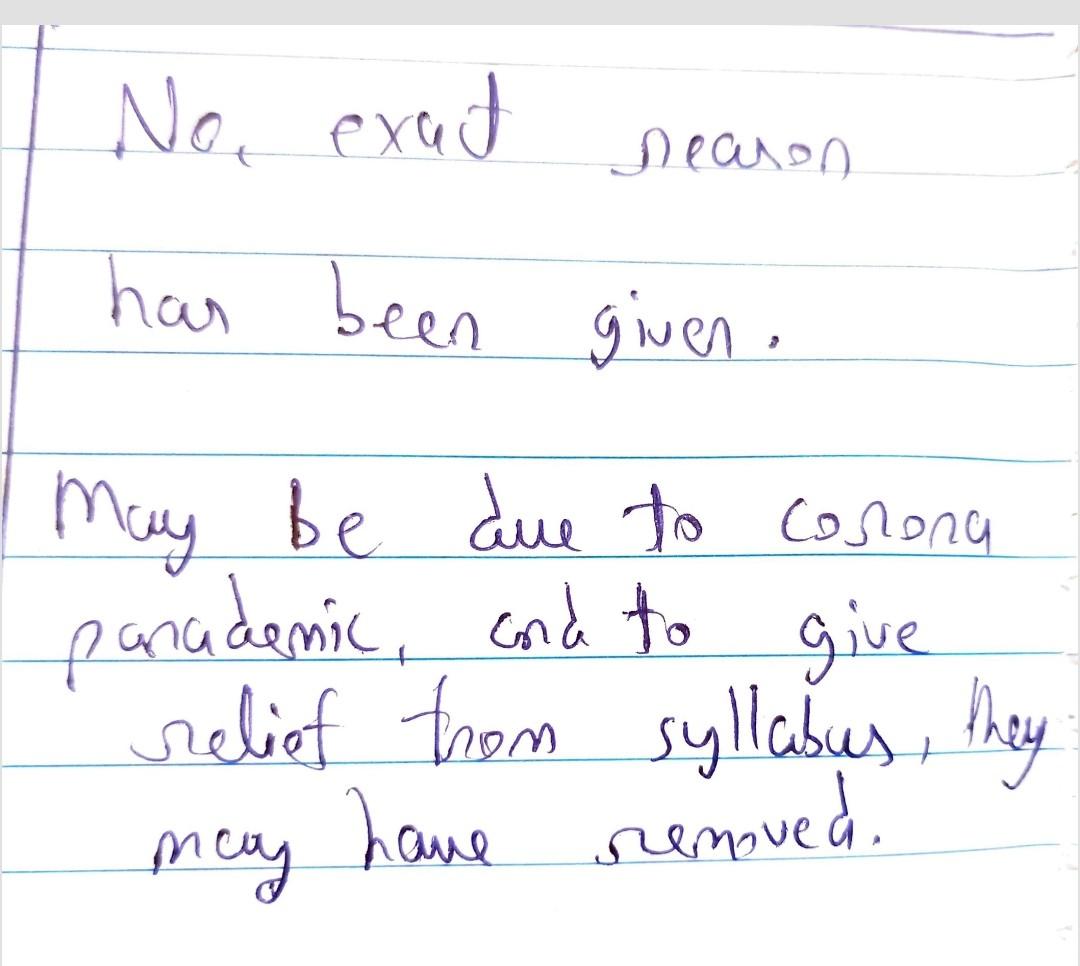 No, exact reason
has been given.
May be due to corona
panademic, and to give
relief from syllabus, they
may have removed.